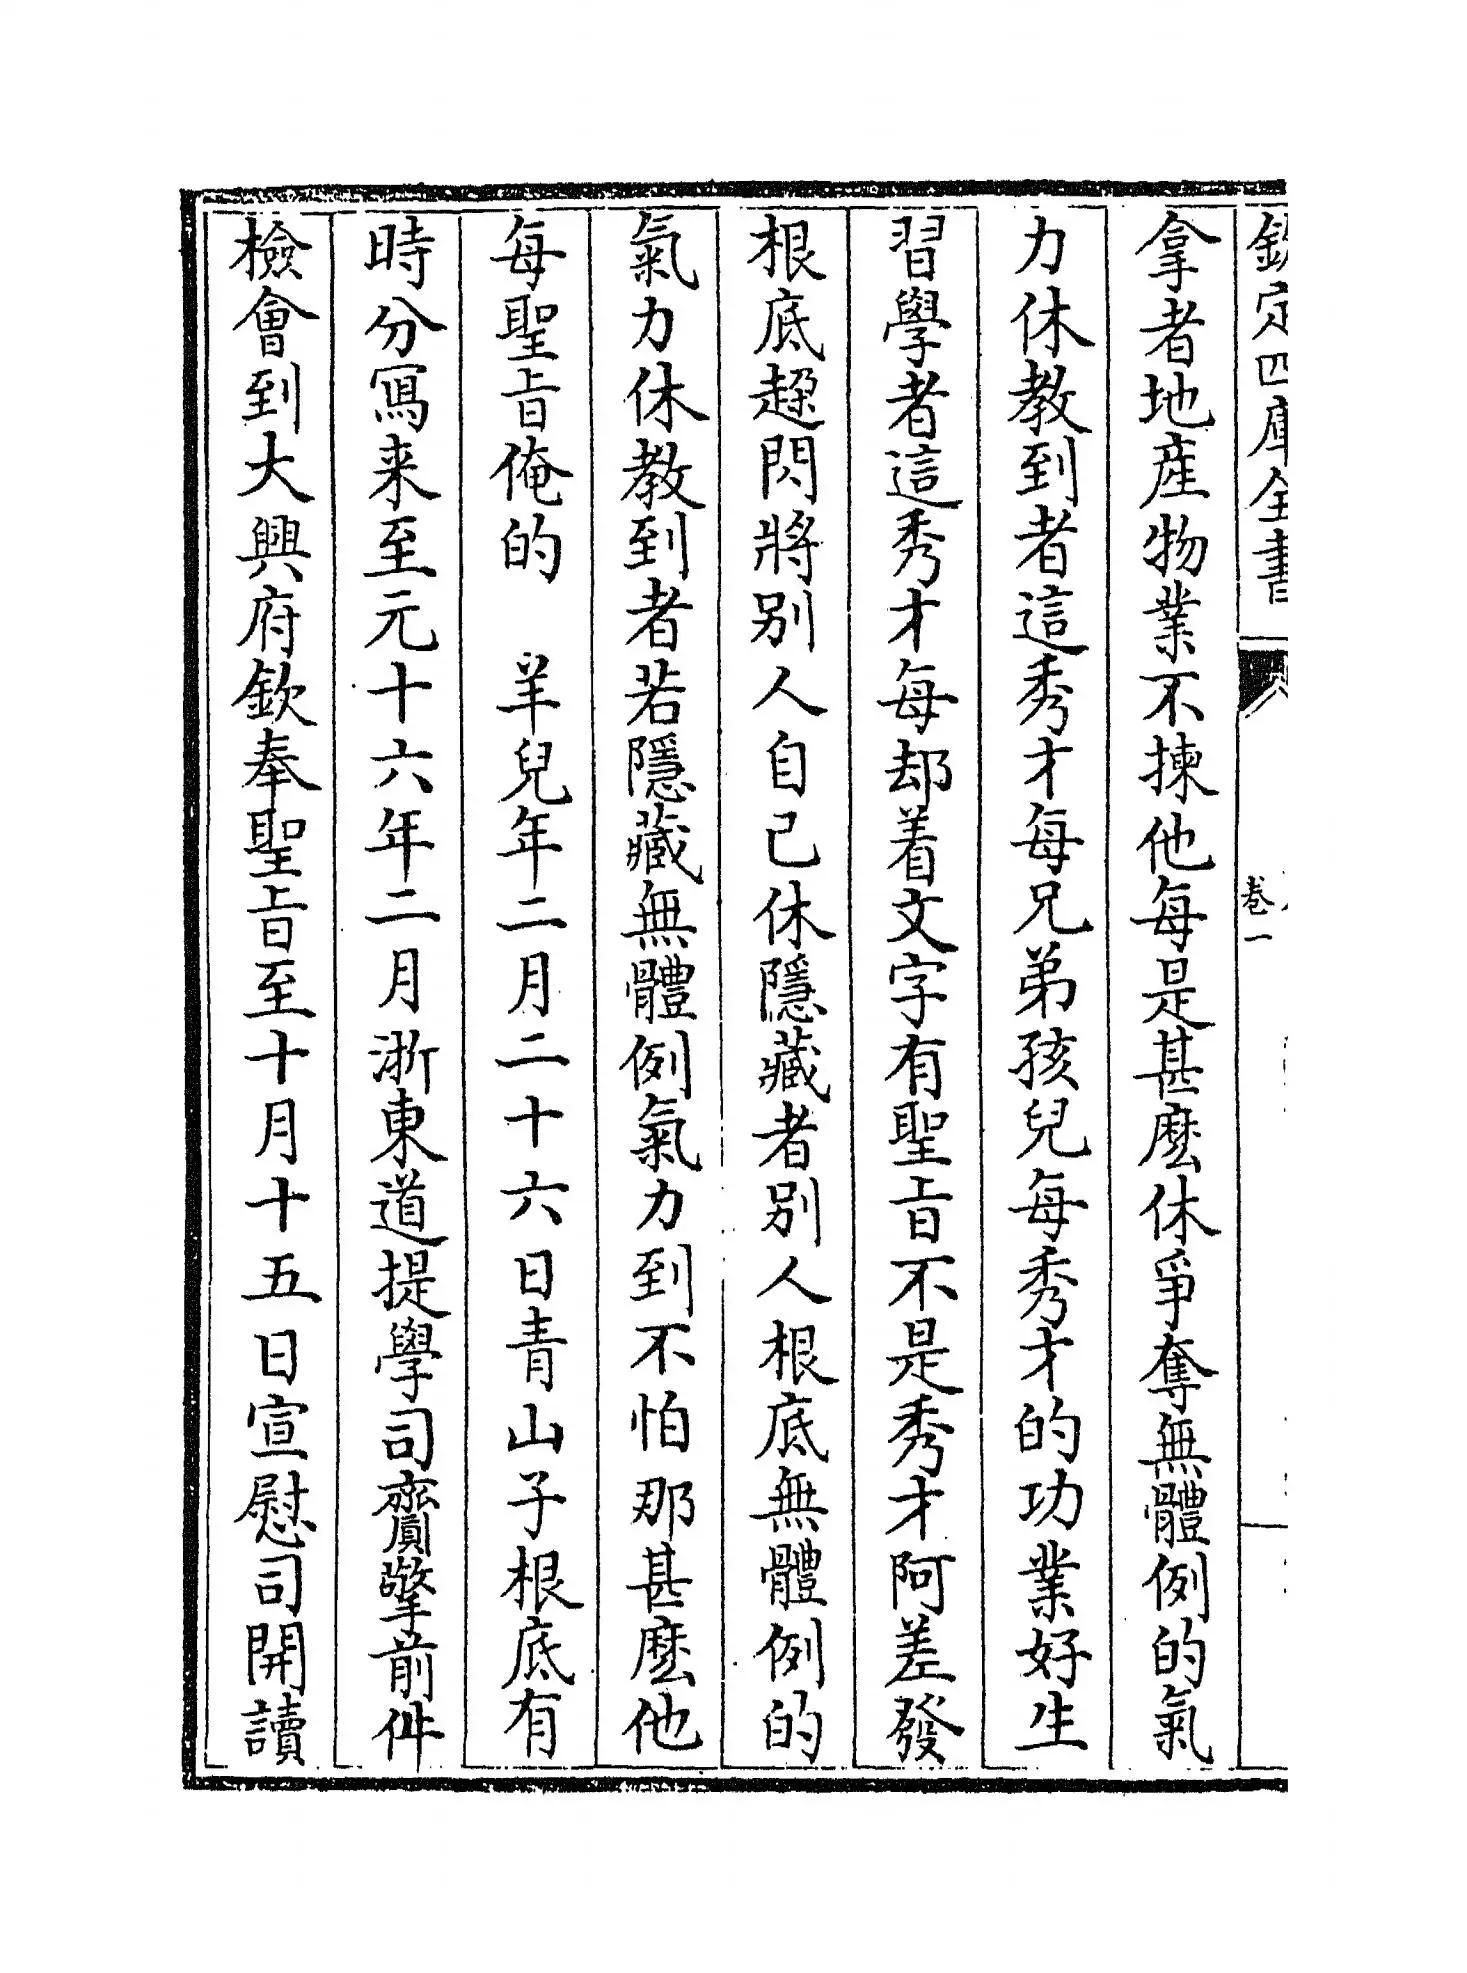 欽定四庫全書
卷一
拿者地產物業不揀他每是甚麽休爭奪無體例的氣
力休教到者這秀才每兄弟孩兒每秀才的功業好生
習學者這秀才每却着文字有聖旨不是秀才阿差發
根底趓閃將别人自己休隱藏者别人根底無體例的
氣力休教到者若隱藏無體例氣力到不怕那甚麽他
每聖旨俺的　羊兒年二月二十六日青山子根底有
時分寫来至元十六年二月浙東道提學司齎擎前件
檢會到大興府欽奉聖旨至十月十五日宣慰司開讀